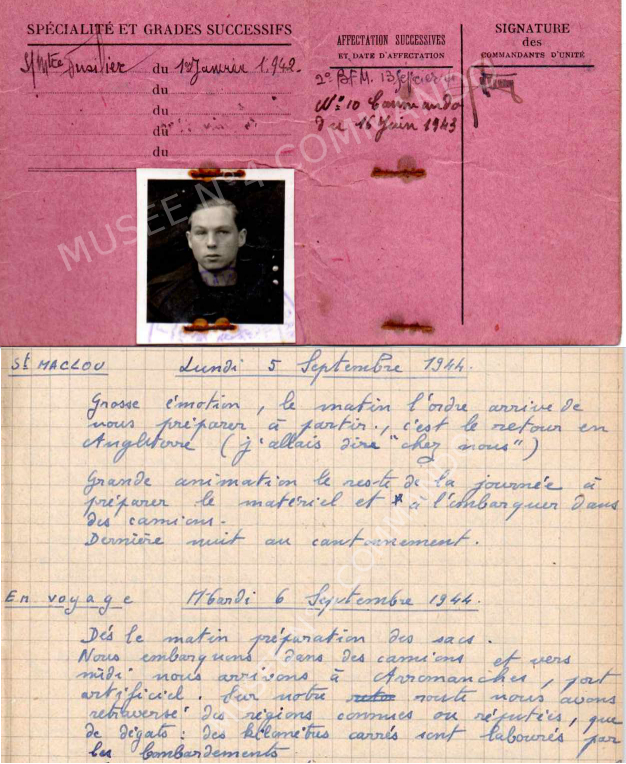 SPÉCIALITÉ ET GRADES SUCCESSIFS
fusilier du 1er Janvier 1942
du
du
du
du
AFFECTATION SUCCESSIVES
ET DATE D'AFFECTATION
2e BFM. 13
No 10 Commando
du 16 Juin 1943
SIGNATURE
des
COMMANDANTS D'UNITÉ
MUSÉE N°4 COMMANDO
St MACLOU Lundi 5 Septembre 1944.
Grosse émotion, le matin l'ordre arrive de
nous préparer à partir., c'est le retour en
Angleterre (j'allais dire "chez nous")
Grande animation le reste de la journée à
préparer le matériel et à l'embarquer dans
des camions.
Dernière nuit au cantonnement.
En voyage Mardi 6 Septembre 1944.
Dés le matin préparation des sacs.
Nous embarquons dans des camions et vers
midi nous arrivons à Arromanches, port
artificiel. Sur notre route nous avons
retraversé des régions connues ou réputées, que
de dégats : des kilomètres carrés sont labourés par
les bombardements